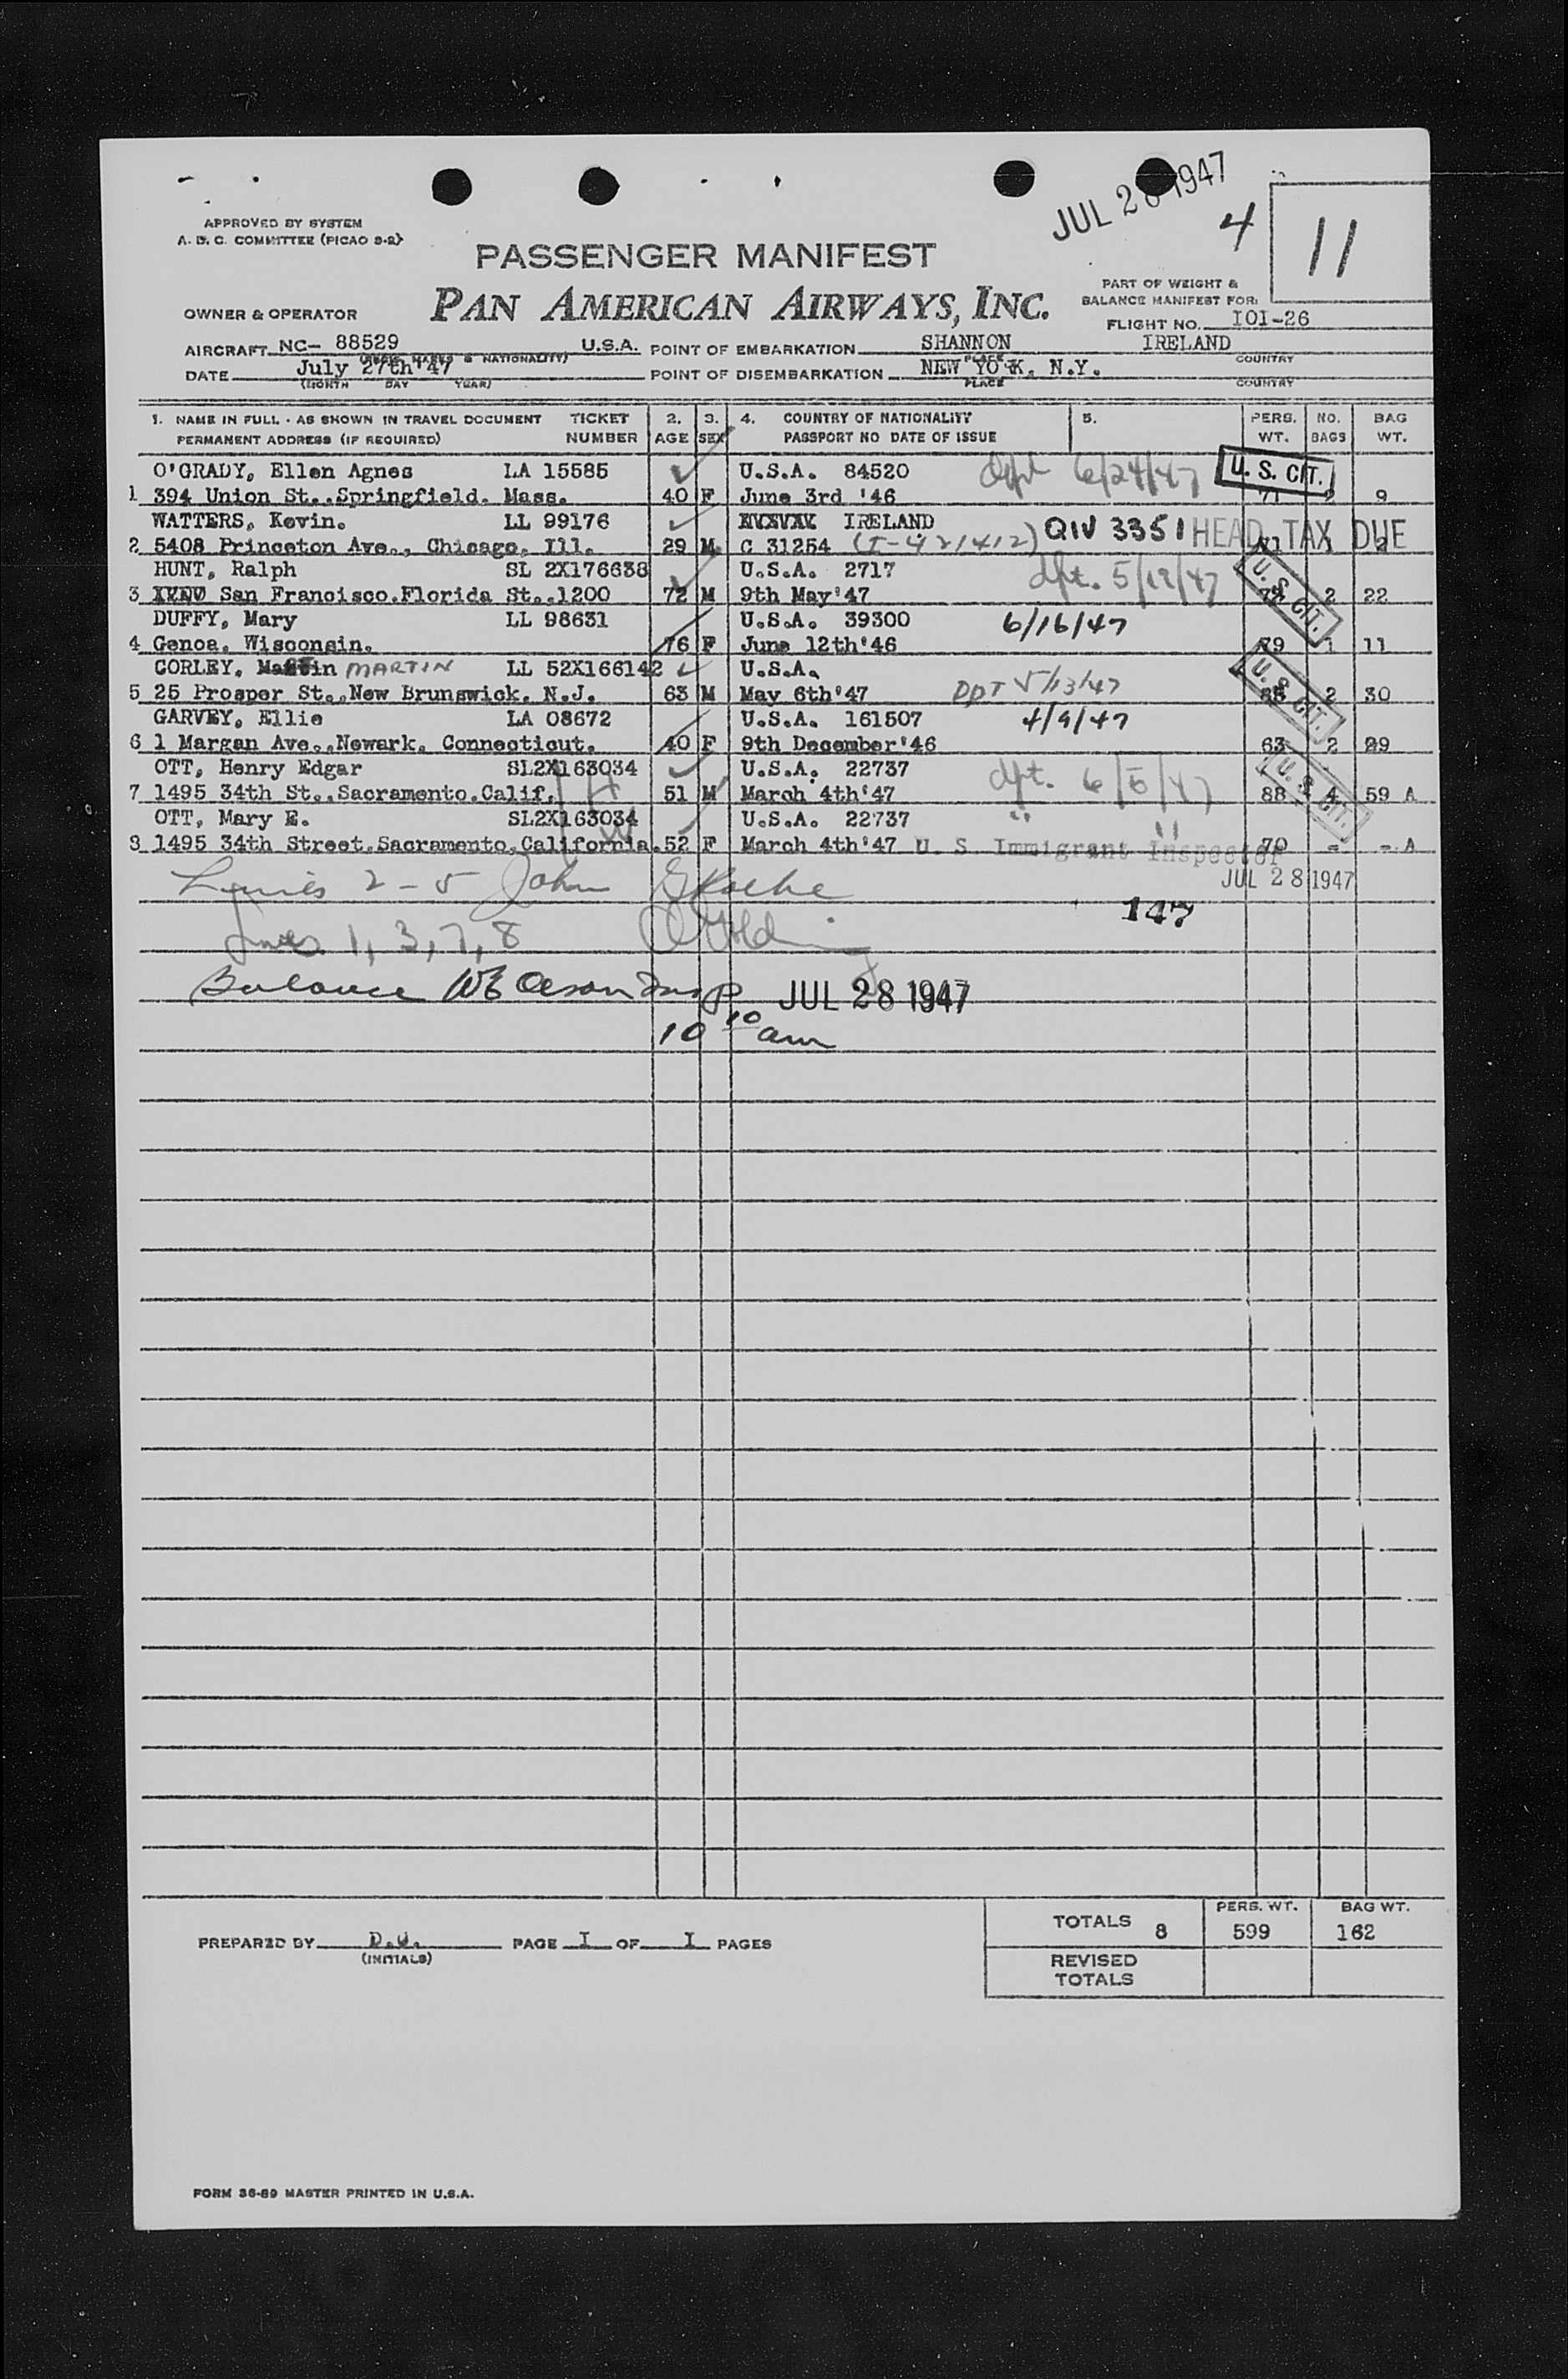 JUL 28 1947
4
11
APPROVED BY SYSTEM
A. D. C. COMMITTEE (PICAO 9-2)
PASSENGER MANIFEST
PAN AMERICAN AIRWAYS, INC.
PART OF WEIGHT &
BALANCE MANIFEST FOR:
OWNER & OPERATOR
FLIGHT NO. IOI-26
AIRCRAFT NC- 88529 U.S.A. POINT OF EMBARKATION SHANNON IRELAND
MARKS & NATIONALITY) PLACE COUNTRY
DATE July 27th'47 POINT OF DISEMBARKATION NEW YO K. N.Y.
(MONTH DAY YEAR) PLACE COUNTRY
1. NAME IN FULL - AS SHOWN IN TRAVEL DOCUMENT TICKET 2. 3. 4. COUNTRY OF NATIONALITY 5. PERS. NO. BAG
PERMANENT ADDRESS (IF REQUIRED) NUMBER AGE SEX PASSPORT NO DATE OF ISSUE WT. BAGS WT.
O'GRADY, Ellen Agnes LA 15585 U.S.A. 84520 dpt 6/24/47 U. S. CIT.
1 394 Union St.,Springfield. Mass. 40 F June 3rd '46 71 2 9
WATTERS, Kevin. LL 99176 IRELAND QIV 3351 HEAD TAX DUE
2 5408 Princeton Ave., Chicago. Ill. 29 M. C 31254 (I-421412)
HUNT, Ralph SL 2X176638 U.S.A. 2717 dpt. 5/19/47 U. S. CIT.
3 San Francisco.Florida St..1200 72 M 9th May'47 2 22
DUFFY, Mary LL 98631 U.S.A. 39300 6/16/47
4 Genoa. Wisconsin. 76 F June 12th'46 79 1 11
CORLEY, Martin MARTIN LL 52X166142 U.S.A. U. S. CIT.
5 25 Prosper St.,New Brunswick. N.J. 63 M May 6th'47 DPT 5/13/47 2 30
GARVEY, Ellie LA 08672 U.S.A. 161507 4/9/47
6 1 Margan Ave.,Newark. Connecticut. 40 F 9th December'46 63 2 29
OTT, Henry Edgar SL2X163034 U.S.A. 22737 dpt. 6/5/47 U. S. CIT.
7 1495 34th St.,Sacramento.Calif. H 51 M March 4th'47 88 4 59 A
OTT, Mary E. SL2X163034 W U.S.A. 22737 " "
8 1495 34th Street.Sacramento.California. 52 F March 4th'47 U. S. Immigrant Inspector 70 - - A
Lines 2-5 John JUL 28 1947
147
Lines 1, 3, 7, 8
Balance Insp JUL 28 1947
10 10 am
TOTALS 8 PERS. WT. 599 BAG WT. 162
PREPARED BY PAGE I OF I PAGES
(INITIALS)
REVISED
TOTALS
FORM 36-89 MASTER PRINTED IN U.S.A.